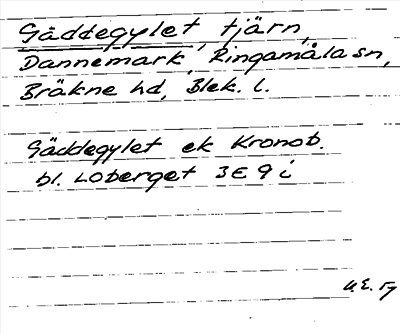 Gäddegylet, tjärn,
Dannemark, Ringamåla sn,
Bräkne hd, Blek. l.
Gäddegylet ek Kronob.
bl. Loberget 3E 9 i